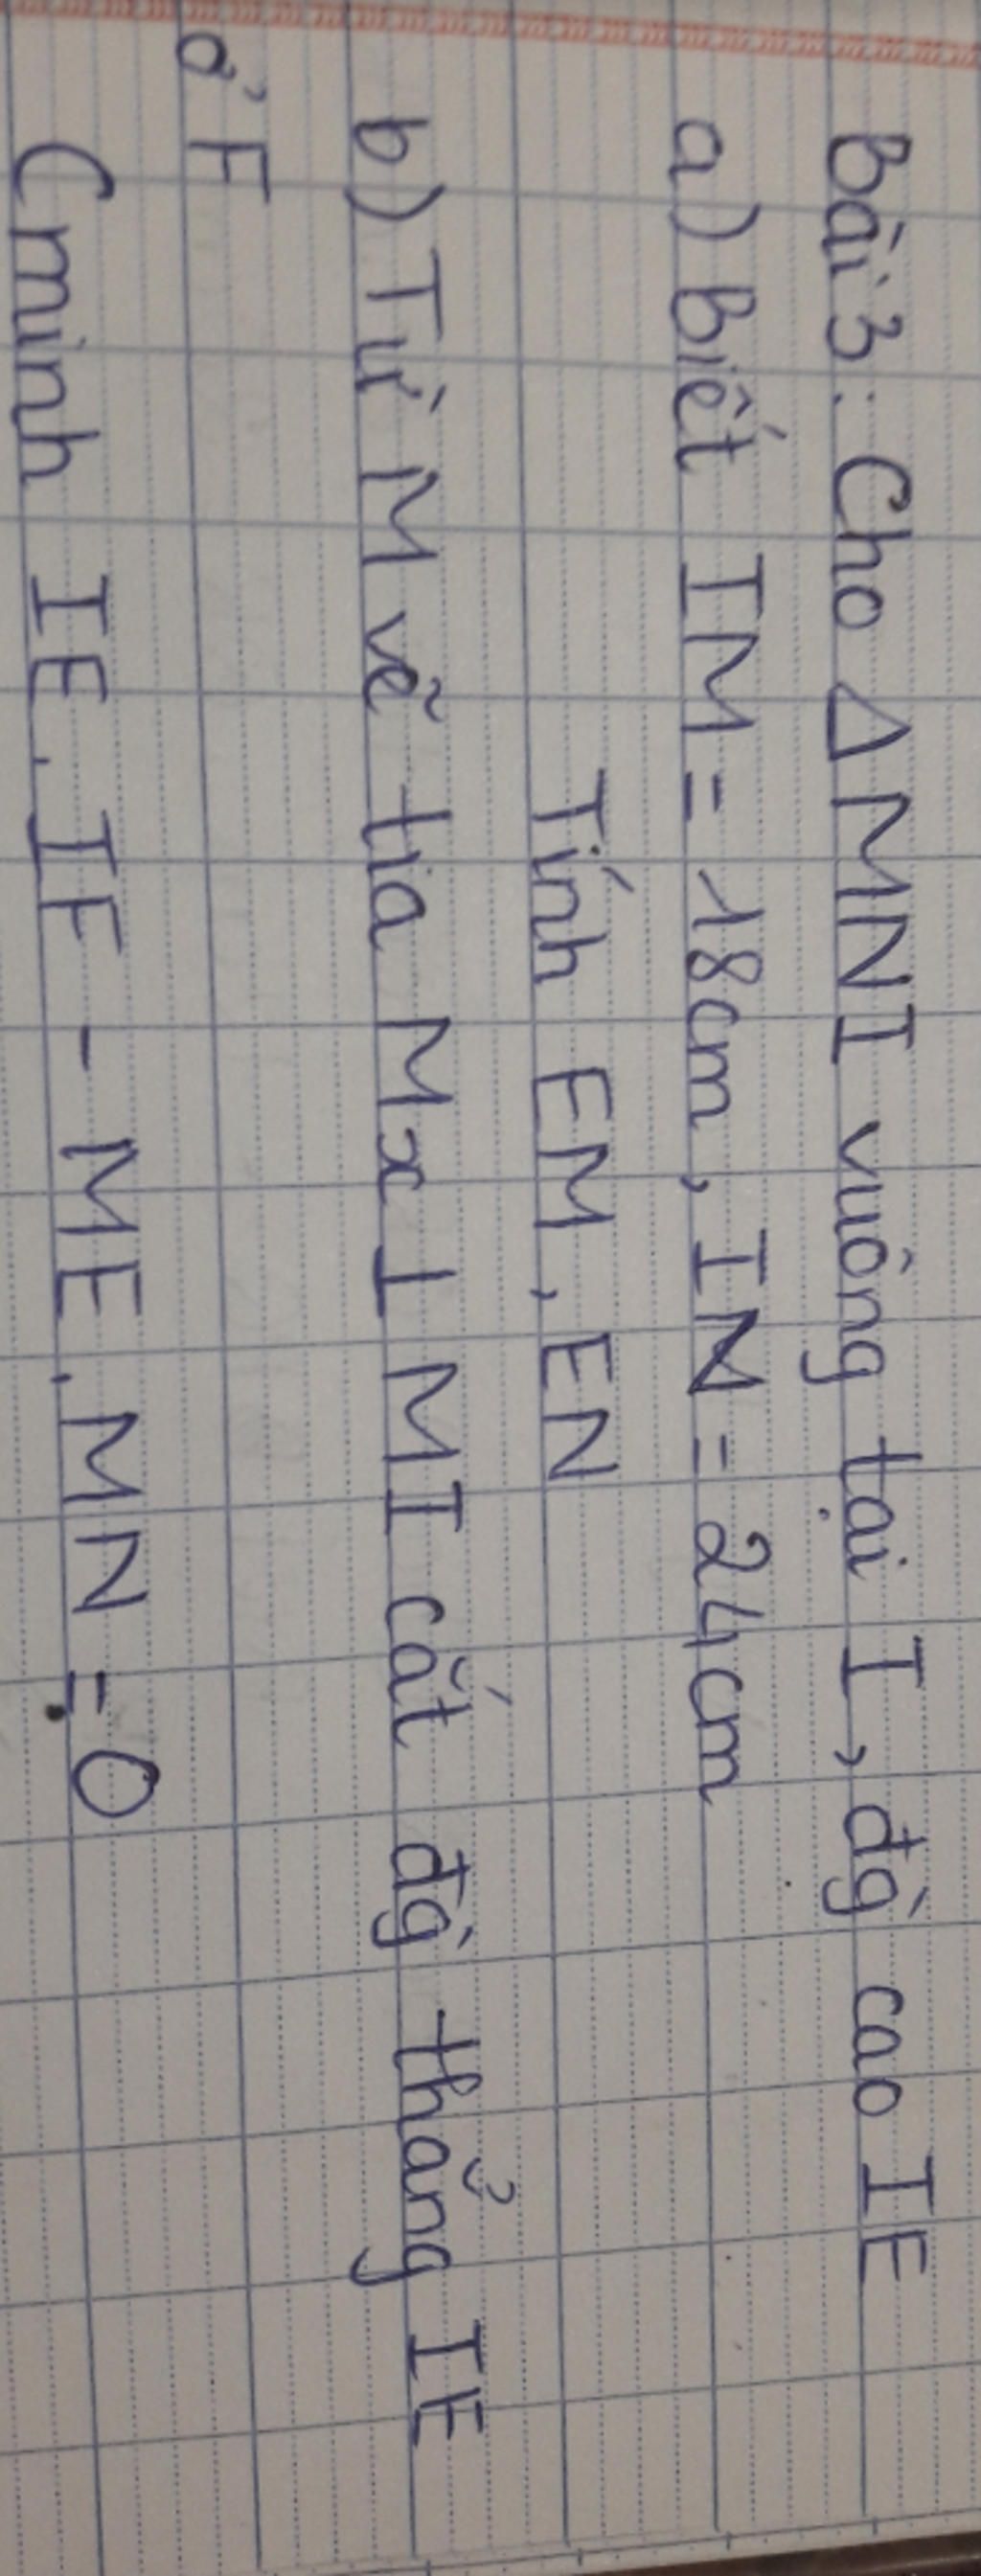 Bài 3: Cho Δ MNI vuông tại I, đg̀ cao IE
a) Biết IM = 18cm, IN = 24cm
Tính EM, EN
b) Từ M vẽ tia Mx ⊥ MI cắt đg̀ thẳng IE
ở F
Cminh IE. IF - ME.MN = 0